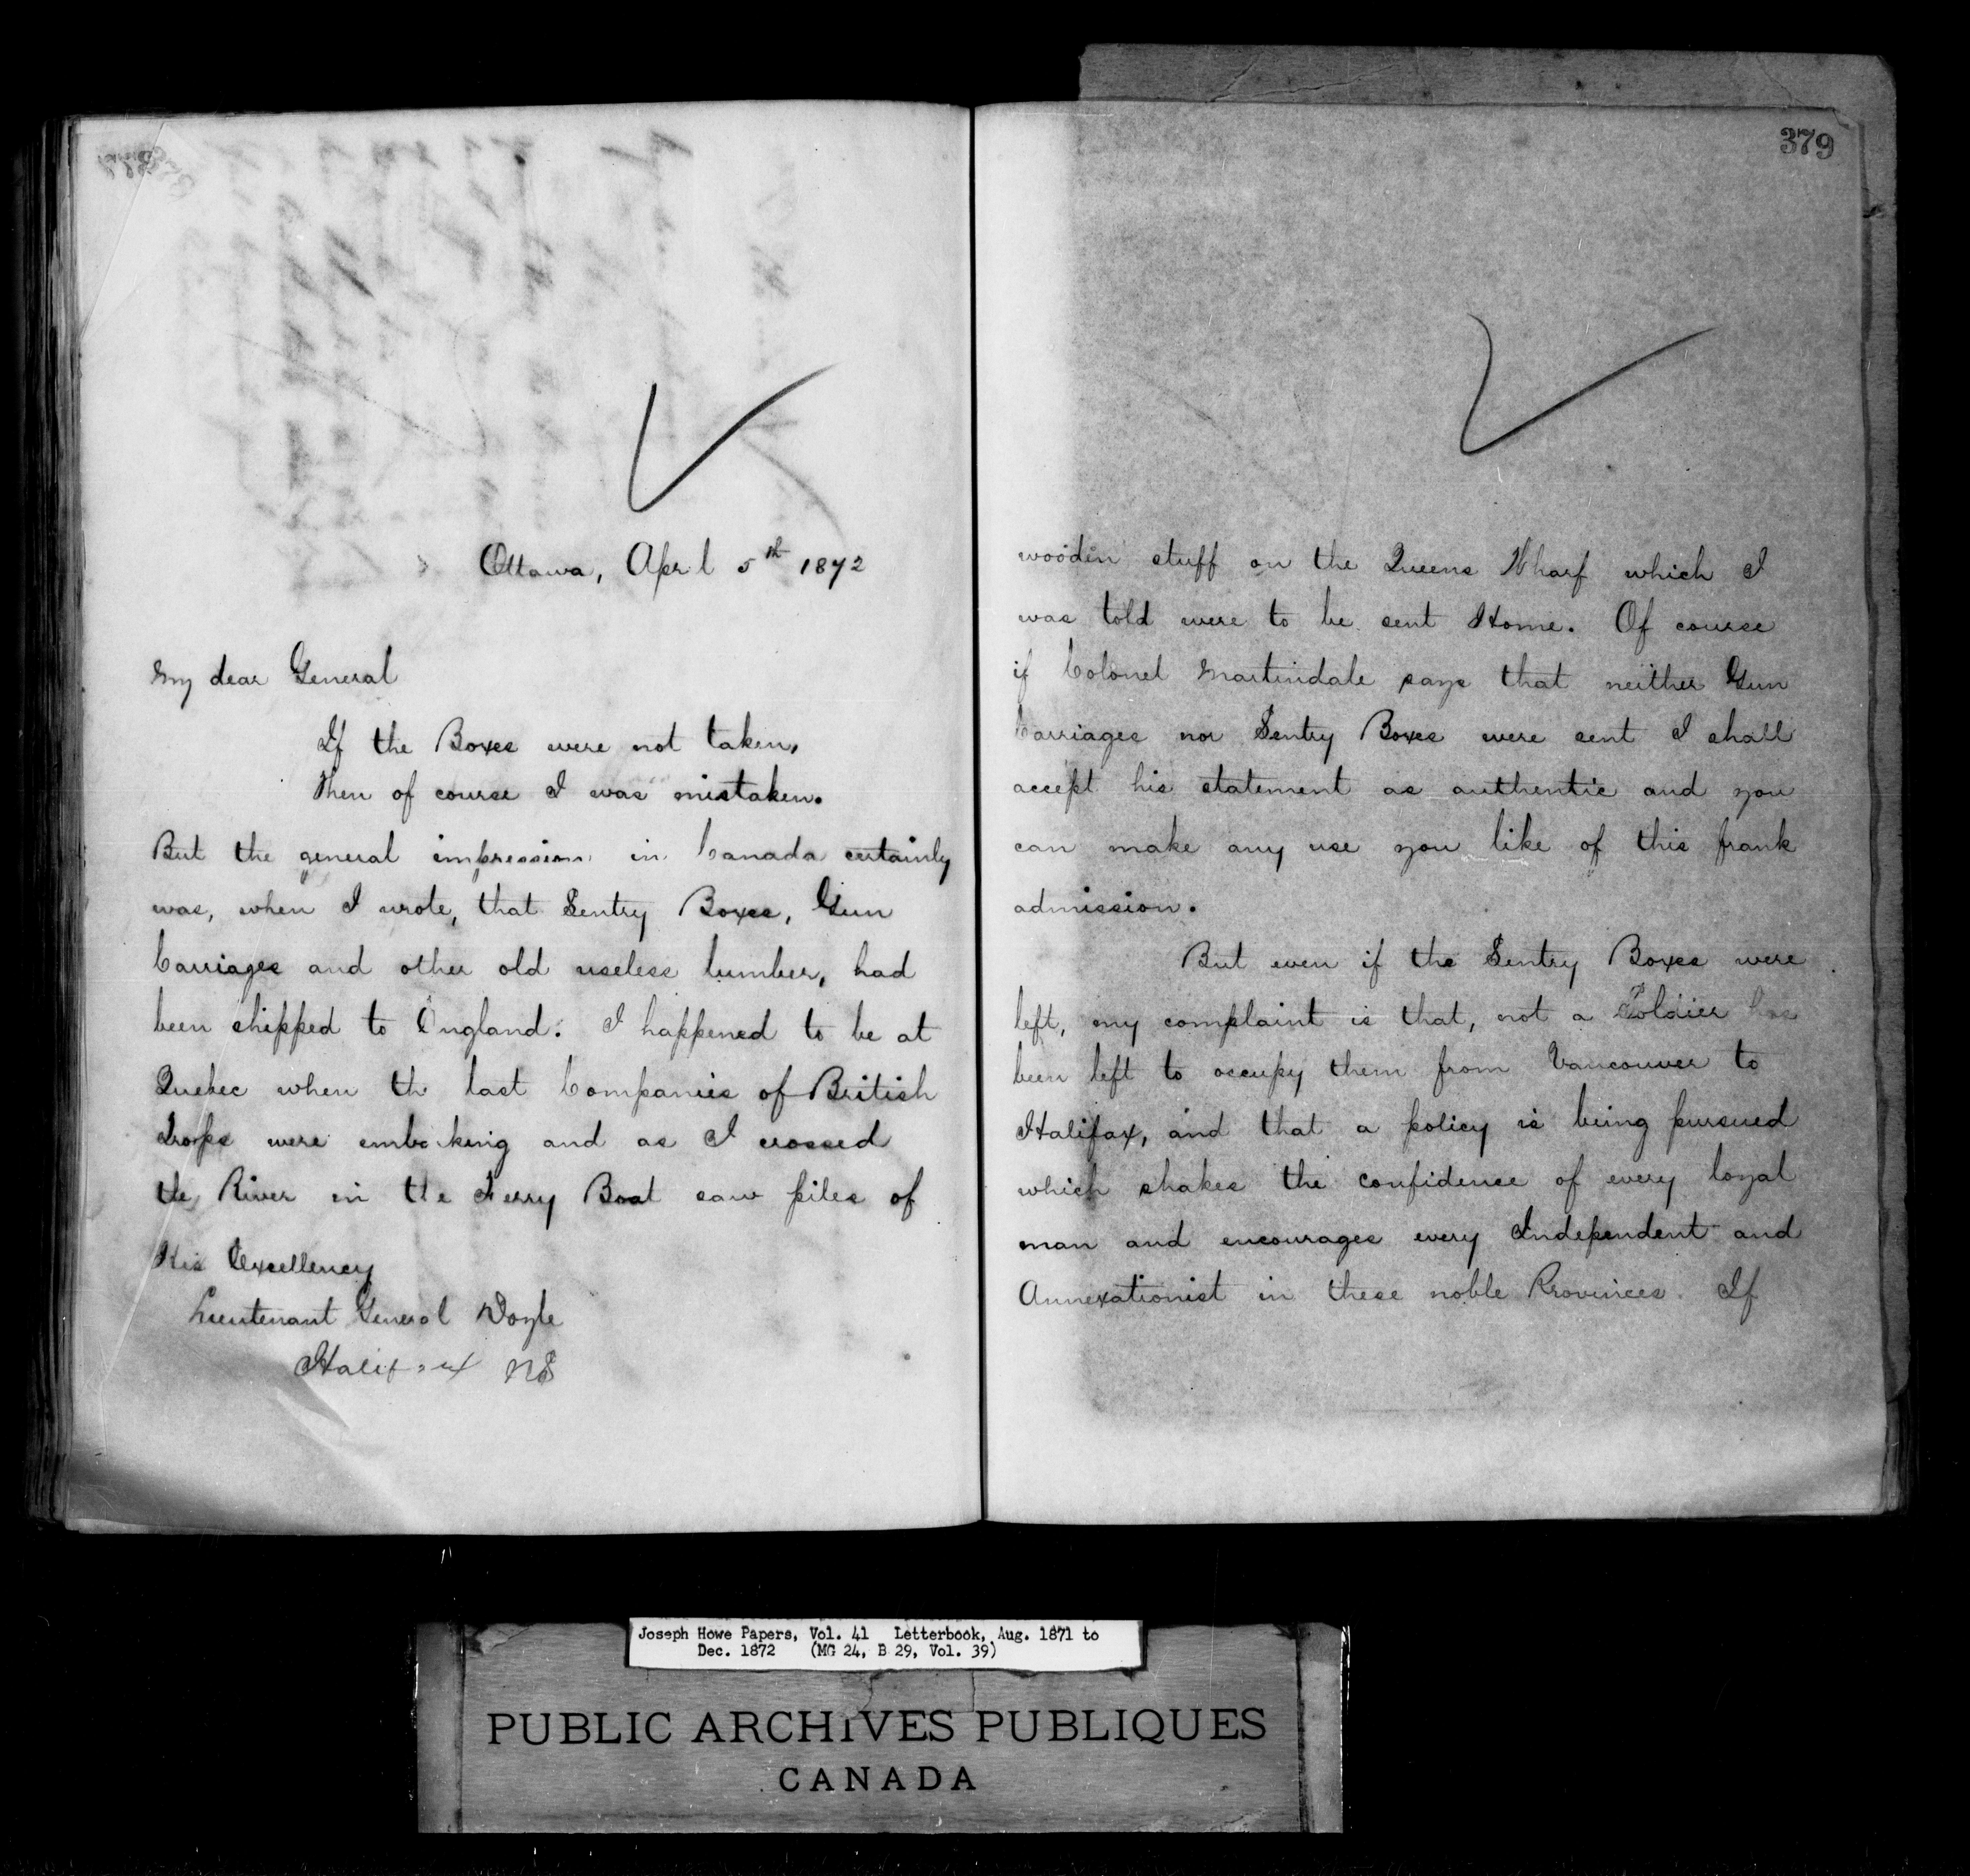 Ottawa, April 5th 1872
My dear General
If the Boxes were not taken,
then of course I was mistaken.
But the general impression in Canada certainly
was, when I wrote, that Sentry Boxes, Gun
Carriages and other old useless lumber, had
been shipped to England. I happened to be at
Quebec when the last Companies of British
Troops were embarking and as I crossed
the River in the Ferry Boat saw piles of
His Excellency
Lieutenant General Doyle
Halifax NS
379
wooden stuff on the Queens Wharf which I
was told were to be sent Home. Of course
if Colonel Martindale says that neither Gun
Carriages nor Sentry Boxes were sent I shall
accept his statement as authentic and you
can make any use you like of this frank
admission.
But even if the Sentry Boxes were
left, my complaint is that, not a Soldier has
been left to occupy them from Vancouver to
Halifax, and that a policy is being pursued
which shakes the confidence of every loyal
man and encourages every Independent and
Annexationist in these noble Provinces. If
Joseph Howe Papers, Vol. 41 Letterbook, Aug. 1871 to
Dec. 1872 (MG 24, B 29, Vol. 39)
PUBLIC ARCHIVES PUBLIQUES
CANADA